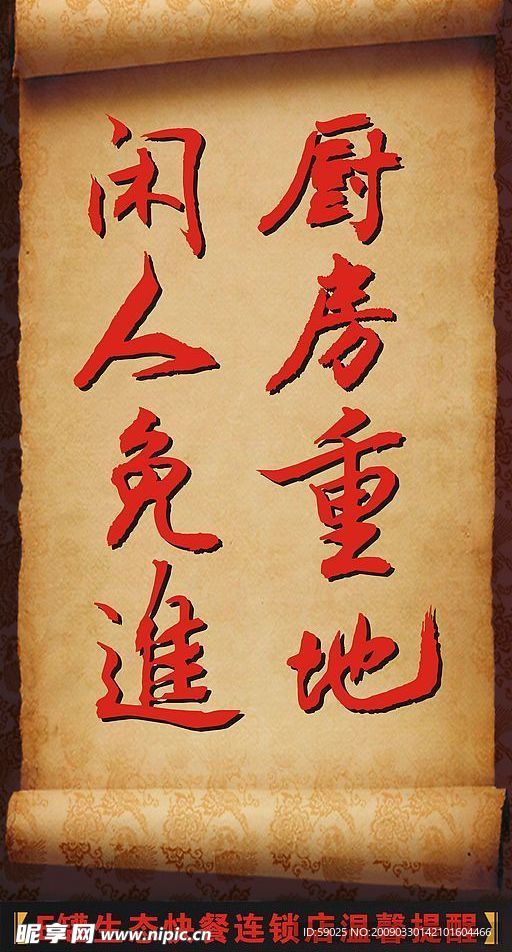 厨房重地
闲人免進
E罐生态快餐连锁店温馨提醒
昵享网 www.nipic.cn
ID:59025 NO:20090330142101604466